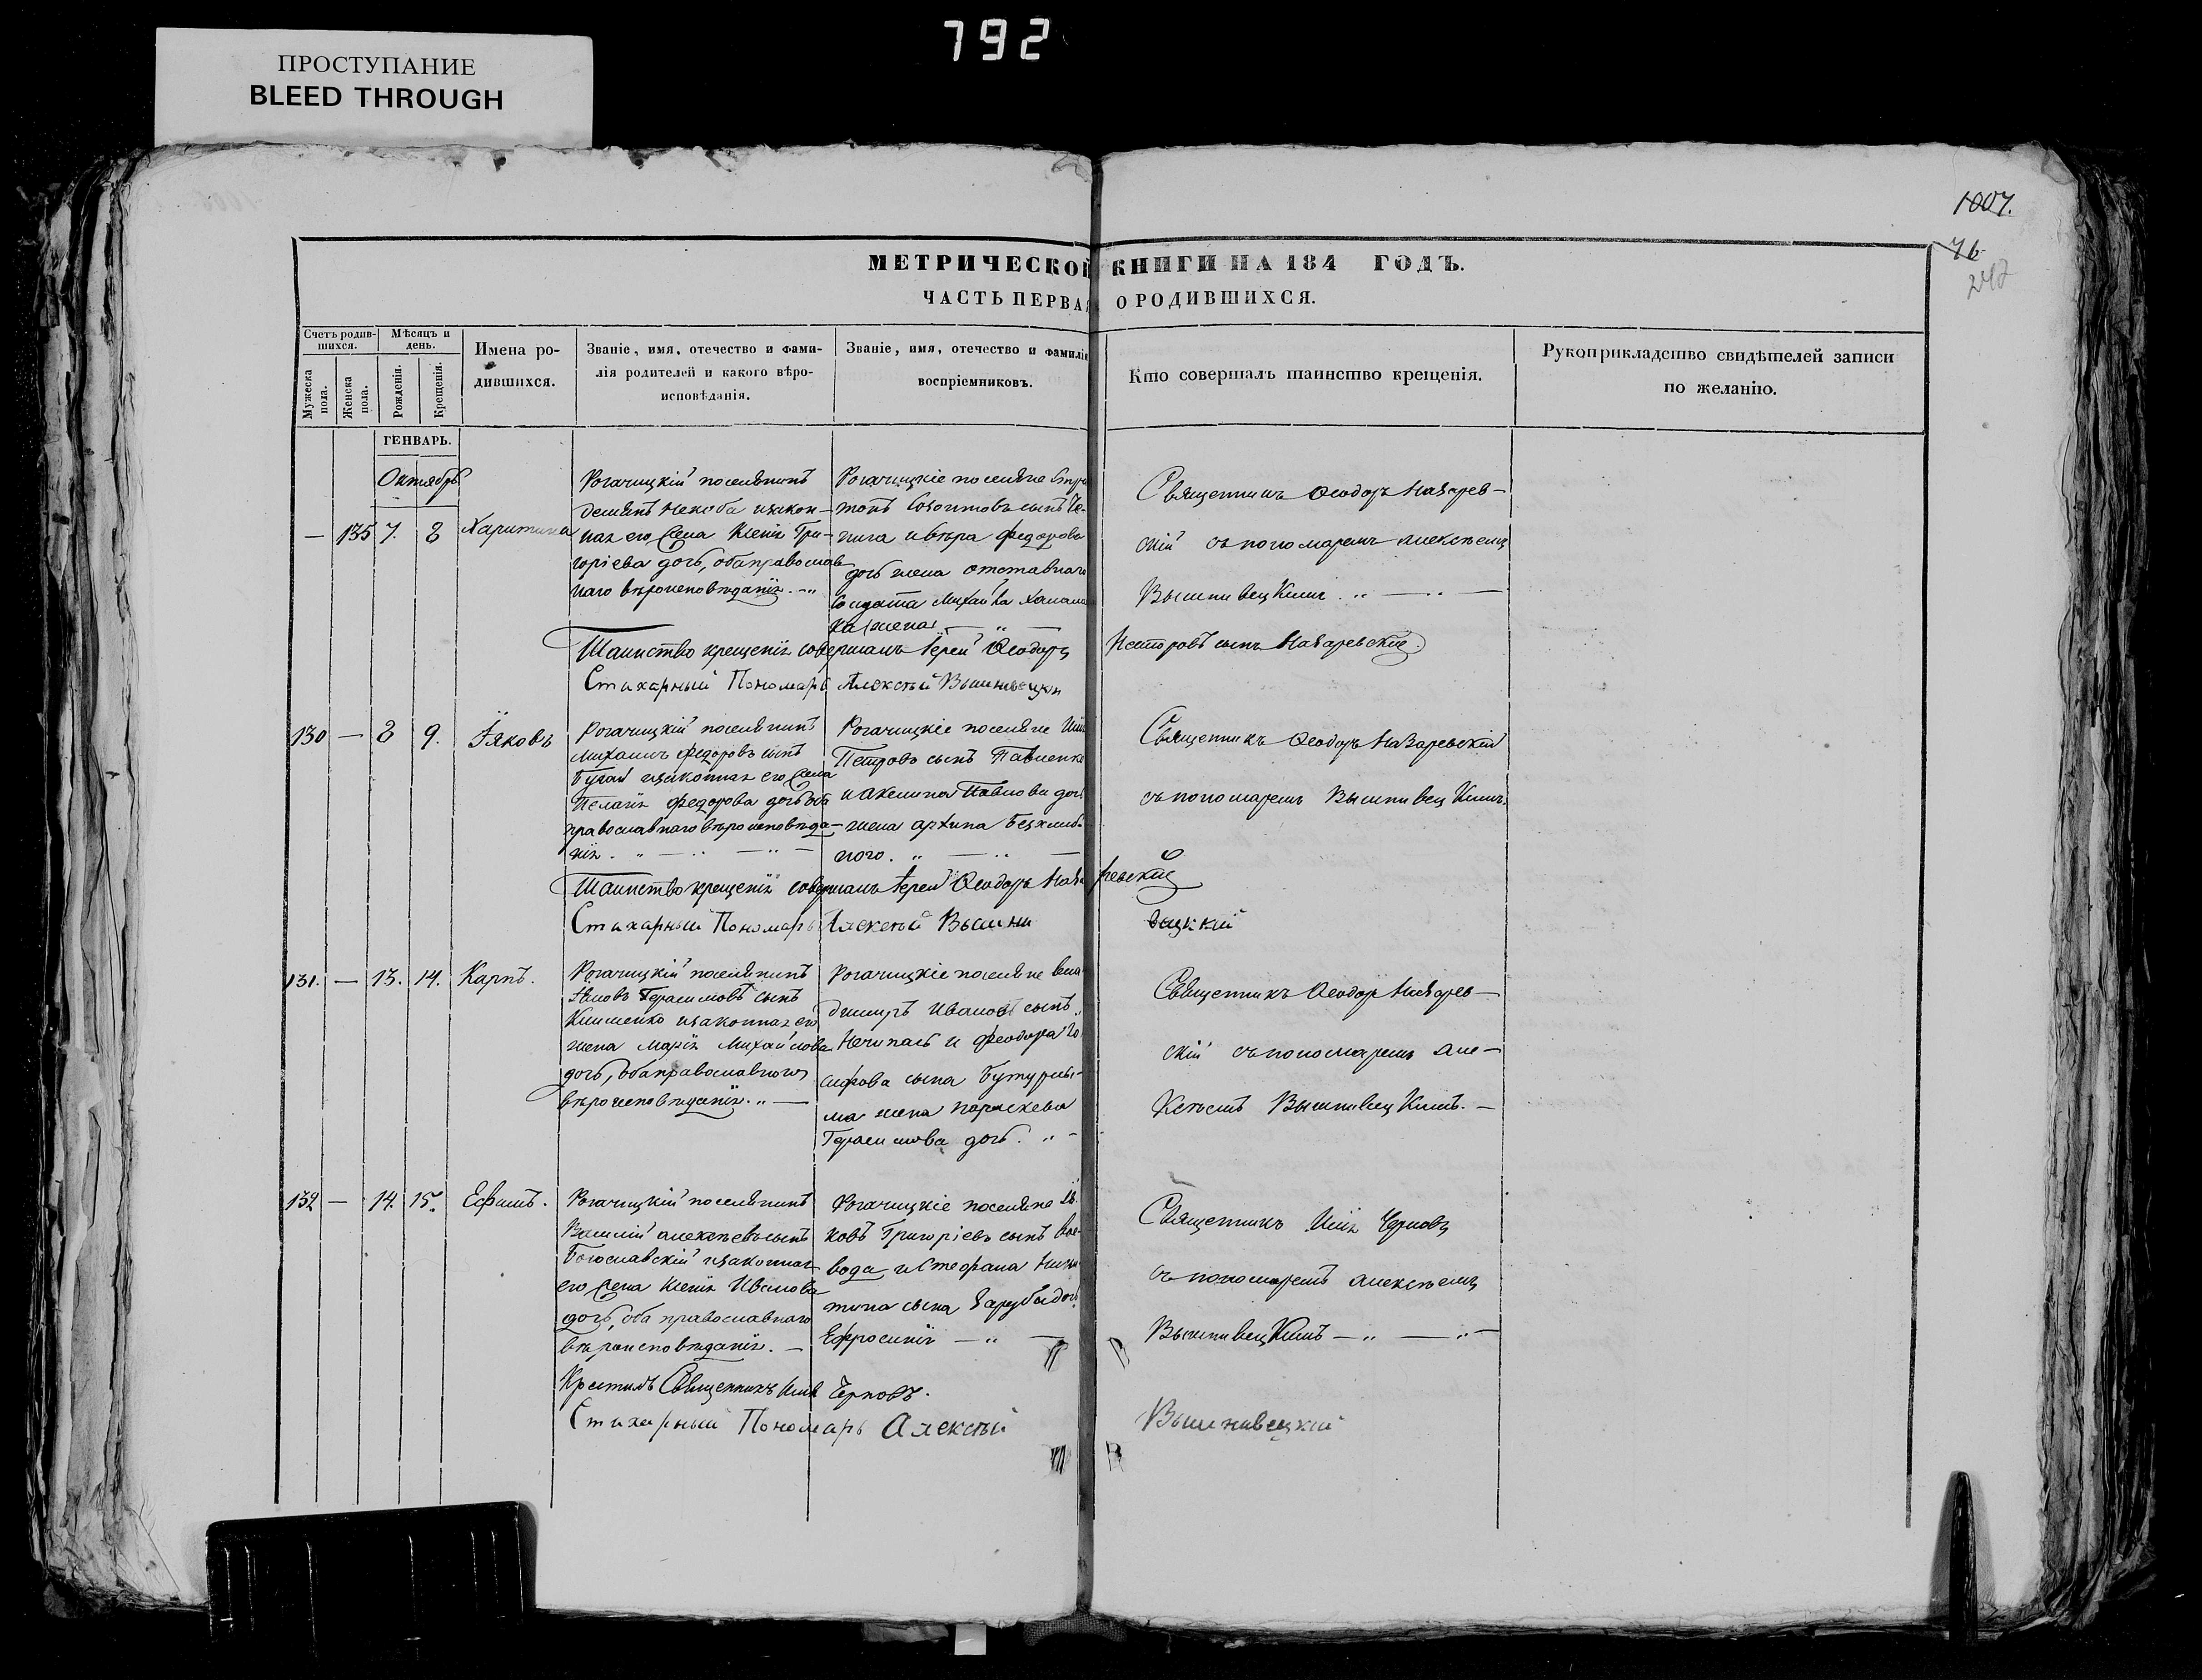 792
ПРОСТУПАНИЕ
BLEED THROUGH
1007.
76
МЕТРИЧЕСКОЙ КНИГИ НА 184 ГОДЪ.
ЧАСТЬ ПЕРВАЯ О РОДИВШИХСЯ.
Счетъ родив-
шихся.
Мужеска пола.
Женска пола.
Мѣсяцъ и
день.
Рожденія.
Крещенія.
Имена ро-
дившихся.
Званіе, имя, отечество и фами-
лія родителей и какого вѣро-
исповѣданія.
Званіе, имя, отечество и фамилія
воспріемниковъ.
Кто совершалъ таинство крещенія.
Рукоприкладство свидѣтелей записи
по желанію.
ГЕНВАРЬ.
Октябрь
— 135 7. 8 Харитина
Рогачицкій поселянинъ
Демянъ изакон-
ная его жена Ксенія Гри-
горіева дочь, оба православ-
наго вѣроисповѣданія. —
Рогачицкіе поселяне
сынъ
и Вѣра Федорова
дочь жена отставнаго
солдата Михайла
жена —
Священникъ Ѳеодоръ Назарев-
скій съ пономаремъ Алексѣемъ
Вышнивецкимъ. — —
Таинство крещенія совершалъ Іерей Ѳеодоръ Несторовъ сынъ Назаревскій.
Стихарный Пономарь Алексѣй Вышнивецкій
130 — 8 9. Іяковъ
Рогачицкій поселянинъ
Михаилъ Федоровъ сынъ
Бугай изаконная его жена
Пелагія Федорова дочь оба
православнаго вѣроисповѣда-
нія. — —
Рогачицкіе поселяне Илія
Петровъ сынъ Павленко
и Акелина Павлова дочь
жена Архипа Безхлѣб-
ного. —
Священникъ Ѳеодоръ Назаревскій
съ пономаремъ Вышнивецкимъ.
Таинство крещенія совершалъ Іерей Ѳеодоръ Назаревскій
Стихарный Пономарь Алексѣй Вышнивецкій
131. — 13. 14. Карпъ.
Рогачицкій поселянинъ
Яковъ Герасимовъ сынъ
Клименко изаконная его
жена Марія Михайлова
дочь, оба православного
вѣроисповѣданія. —
Рогачицкіе поселяне Вла-
димиръ Ивановъ сынъ
Нечипасъ и Феодора Іо-
сифова сына Бутурлы-
ма жена Параскева
Герасимова дочь. —
Священникъ Ѳеодоръ Назарев-
скій съ пономаремъ Але-
ксѣемъ Вышнивецкимъ. —
132 — 14. 15. Ефимъ.
Рогачицкій поселянинъ
Василій Алексѣевъ сынъ
Богославскій изаконная
его жена Ксенія Иванова
дочь, оба православнаго
вѣроисповѣданія. —
Рогачицкіе поселяне Іа-
ковъ Григоріевъ сынъ Вое-
вода и Стефана Ники-
тина сына Зарубы дочь
Ефросинія —
Священникъ Илія Черновъ
съ пономаремъ Алексѣемъ
Вышнивецкимъ — —
Крестилъ Священникъ Илія Черновъ.
Стихарный Пономарь Алексѣй Вышнивецкій